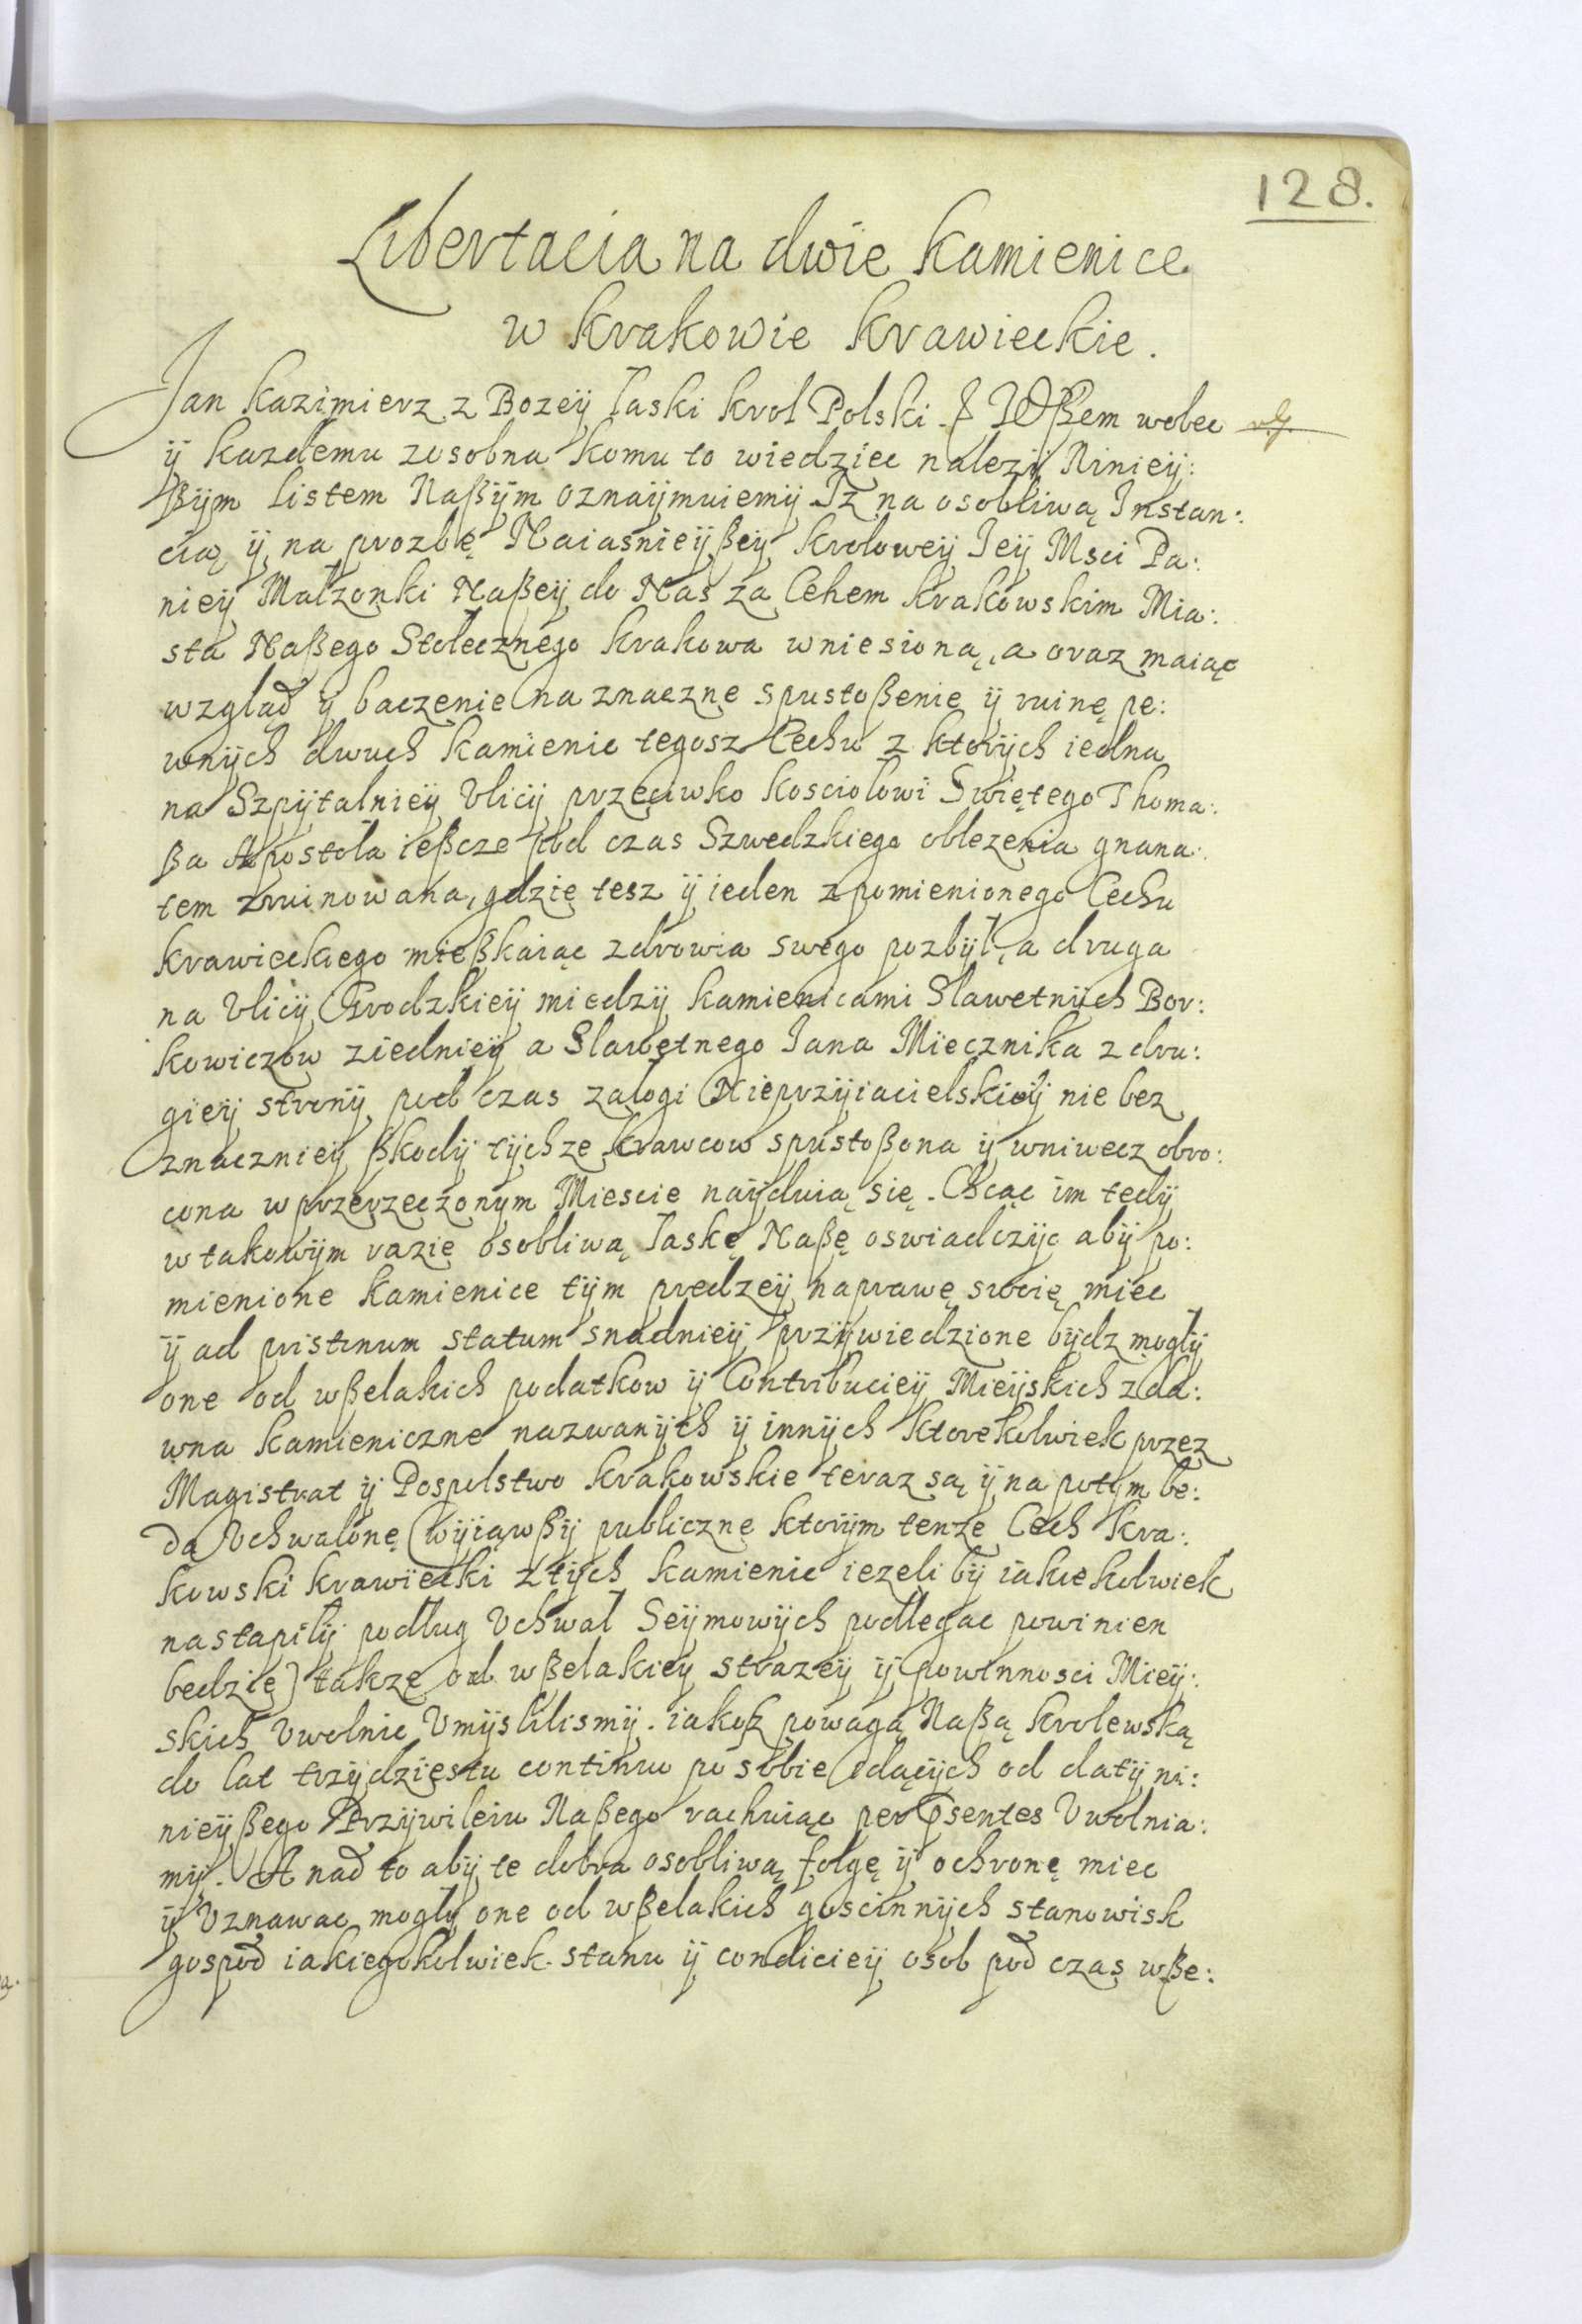 128.
Libertacia na dwie kamienice
w krakowie krawieckie.
Jan kazimierz z Bozeÿ łaski krol Polski. & Wßem wobec
ÿ kazdemu zosobna komu to wiedziec nalezÿ Ninieÿ:
ßÿm listem Naßÿm oznaÿmuiemÿ Iz na osobliwą Instan:
cią ÿ na prozbę Naiasnieÿßeÿ kroloweÿ Ieÿ Msci Pa:
nieÿ Małzonki Naßeÿ do Nas za Cehem krakowskim Mia:
sta Naßego Stolecznego krakowa wniesioną, a oraz maiąc
wzgląd ÿ baczenie na znaczne spustoßenie ÿ ruinę pe:
wnÿch dwuch kamienic tegosz Cechu z ktorÿch iedna
na Szpÿtalnieÿ Vlicÿ przeciwko kosciolowi Swiętego Thoma:
ßa Apostola ießcze pod czas Szwedzkiego oblezenia gnana:
tem zruinowana, gdzie tesz ÿ ieden z pomienionego Cechu
krawieckiego mießkaiąc zdrowia swego pozbÿł, a druga
na Vlicÿ Grodzkieÿ miedzÿ kamienicami Slawetnÿch Bor:
kowiczow ziednieÿ a Slawetnego Iana Miecznika z dru:
gieÿ stronÿ pod czas zalogi Nieprzÿiacielskieÿ nie bez
znacznieÿ ßkodÿ tÿchze krawcow spustoßona ÿ wniwecz obro:
cona w przerzeczonym Miescie naÿduią się. Chcąc im tedÿ
w takowÿm razie osobliwą łaskę Naßę oswiadczÿc abÿ po:
mienione kamienice tÿm predzeÿ naprawę swoię miec
ÿ ad pristinum statum snadnieÿ przÿwiedzione bÿdz moglÿ
one od wßelakich podatkow ÿ Contribucieÿ Mieÿskich z da:
wna kamieniczne nazwanÿch ÿ innÿch ktorekolwiek przez
Magistrat ÿ Pospolstwo krakowskie teraz są ÿ na potym be:
da Vchwalone (wÿiąwßÿ publiczne ktorÿm tenze Cech kra:
kowski krawiecki z tÿch kamienic iezeli bÿ iakiekolwiek
nastapilÿ podług Vchwał Seÿmowÿch podlegac powinien
bedzie) takze od wßelakieÿ strazeÿ ÿ powinnosci Mieÿ:
skich Vwolnic Vmÿslilismÿ. iakoß powagą Naßą krolewską
do lat trzÿdziestu continuo po sobie idącÿch od datÿ ni:
nieÿßego Przÿwileiu Naßego rachuiąc per psentes Vwolnia:
mÿ. A nad to abÿ te dobra osobliwą folgę ÿ ochronę miec
ÿ Vznawac moglÿ one od wßelakich goscinnÿch stanowisk
gospod iakiegokolwiek stanu ÿ condicieÿ osob pod czas wße: